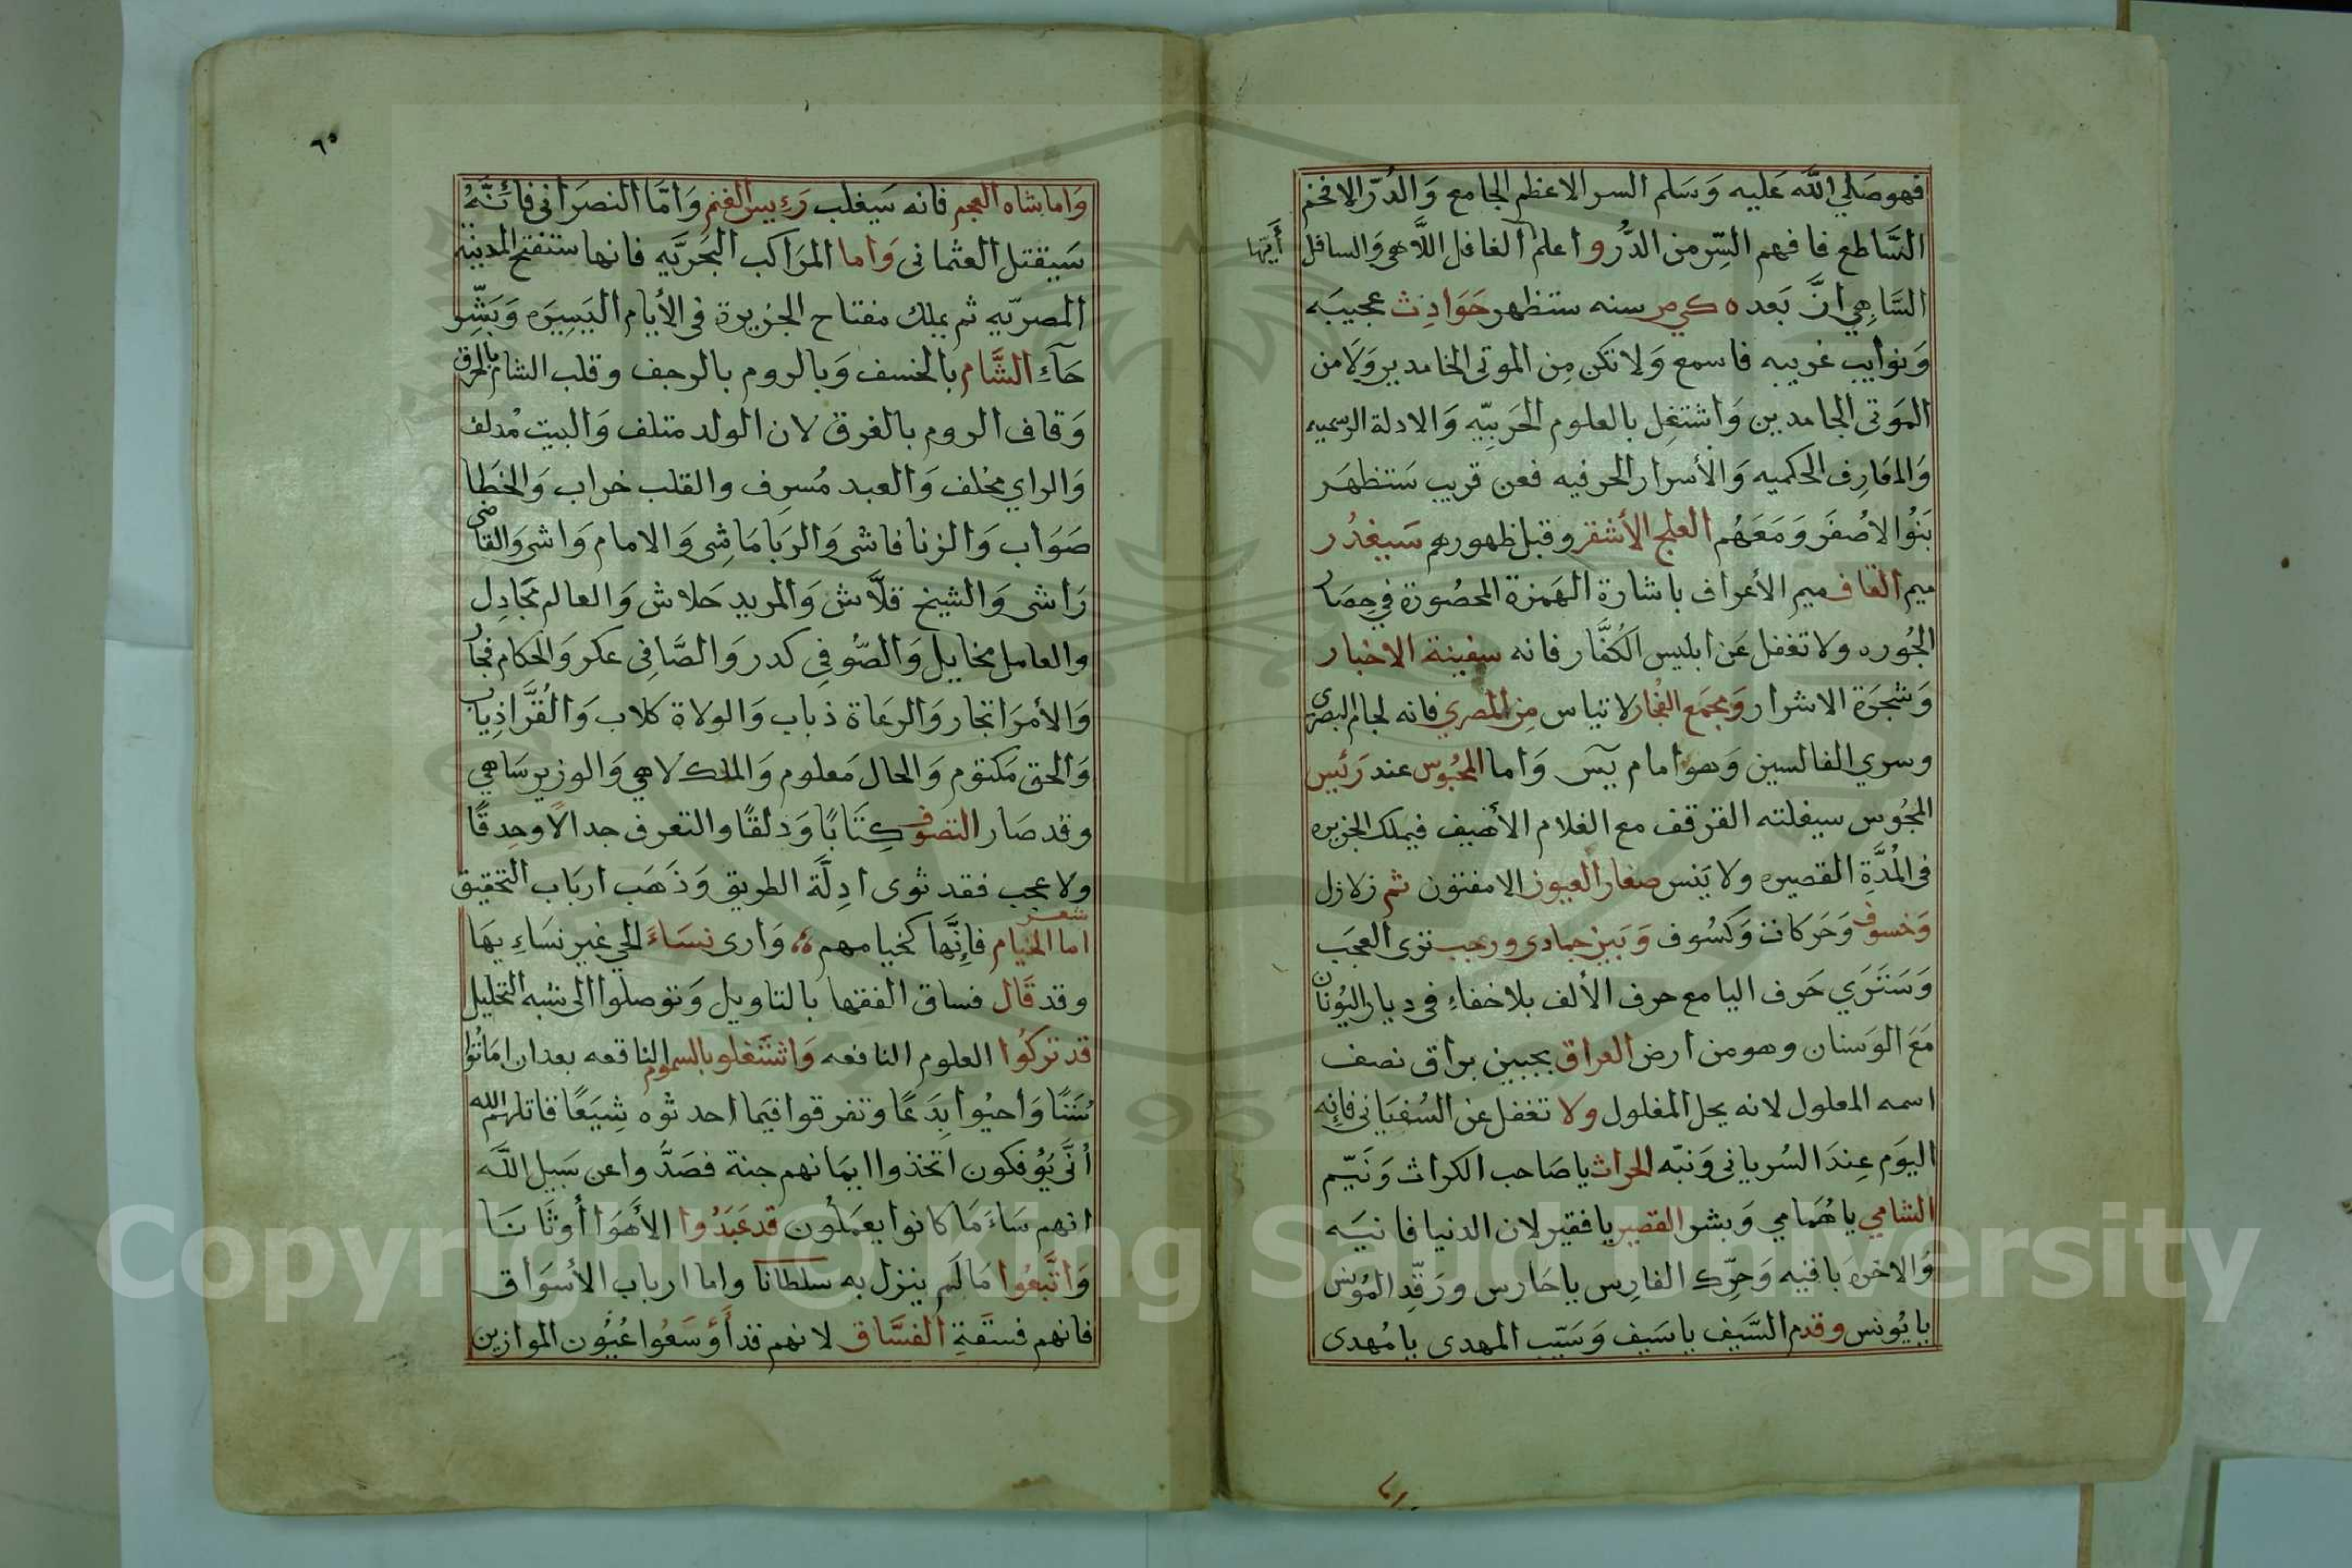 فهو صَلي الله عَليه وَسَلم السر الاعظم الجامع وَالدُرّ الافخم
السَّاطع فافهم السِّر من الدُّر واعلم الغافل اللَّاهي وَالسافل أَيّها
السَّاهِي انَّ بَعده كي ص سنه ستظهر حَوَادِث عجيبَه
وَنوايب غريبه فاسمع وَلا تكن مِن الموتى الخامدين وَلا من
المَوتى الجامدين وَاشتغِل بالعلوم الحَربيّه وَالادلة الرسميه
وَالمَارِف الحكميه وَالأسرار الحرفيه فعن قريب سَتظهَر
بَنُوا الاصُفَر وَمَعَهُم العلج الأشقر وقبل ظهورهم سَيغدُر
ميم القاف ميم الأعراف باشارة الهَمزة المحصُورة في حِصَار
الجُوره ولا تغفل عَن ابليس الكُفَّار فانه سفينة الاخبار
وَشجَرَة الاشرار وَمجمَع الفُجار لا تياس مِن المصري فانه لجام البصري
وسري الفالسين وَهو امام يسَ وَاما المحبُوس عند رَئيس
المجُوس سيفلته القرقف مع الغلام الأهيف فيملك الجزيره
في المُدَّةِ القصيره ولا يَنس صغار العيون الامفتون ثم زلازل
وَخسوف وَحَركات وَكسُوف وَبَين جمادى ورجب ترى العجَب
وَسَتَرَي حَرف اليا مع حرف الألف بلا خفاءِ في ديار اليُونان
مَعَ الوَسنان وهو من ارض العراق بجبين براق نصف
اسمه المعلول لانه يحل المغلول ولا تغفل عن السُفيَاني فإنه
اليوَم عِندَ السُرياني وَنبّه الحراث يا صَاحب الكراث وَنَيّم
الشامي يا هُمامي وَبشر القصير يا فقير لان الدنيا فانيَه
وَالاخرَه باقيه وَحرِّك الفارِس يا حَارس ورَقّدِ المُونس
يا يُونس وقدم السَّيف يا سَيف وَسَيّب المهدى يا مُهدى
٦٥
وَاما شاه العجم فانه سَيغلب رَءييس الغنم وَامّا النصرَانى فأنَّهُ
سَيقتل العثمانى وَاما المرَاكب البَحَريَّه فانها ستفتح المدينة
المصريّه ثم يملك مفتاح الجزيرة في الأيام اليَسِيَره وَبَشِّر
حَآءِ الشَّام بالخسف وَبالروم بالرجف وقلب الشام بالحرق
وَقاف الروم بالغرق لان الولد متلف وَالبيت مُدلف
وَالراي مخلف وَالعبد مُسرِف والقلب خراب وَالخَطا
صَوَاب وَالزنا فاشى وَالرَبا مَاشِى وَالامام وَاشى وَالقاضى
رَاشى وَالشيخ قلَّاش وَالمريد حَلاش وَالعالم مجَادِل
والعامل مخايل وَالصُّوفِي كدر وَالصَّافِى عكر وَالحكام فجار
وَالأمرَا تجار وَالرعَاة ذباب وَالولاة كلاب وَالقُرَّا ذِياب
وَالحق مَكتوم وَالحال مَعلوم وَالملك لاهي وَالوزير سَاهي
وقد صَار التصوف كِتَابًا وَدلقًا والتعرف جدالًا وحِدقًا
ولا عجب فقد ثوى ادِلَّة الطريق وَذَهَب اربَاب التحقيق
شعر
اما الخيام فاِنَّها كخيامهم وَارى نسَاءَ الحي غير نسَاءِ يهَا
وقد قَال فساق الفقها بالتاويل وَتوصلوا الى شبه التحليل
قد تركوُا العلوم النافعه وَاشتَغلو بالسموم الناقعه بعد ان امَاتوُا
سُنَنًا وَاحيُوا بِدَعًا وتفرقوا فيمَا احدثوه شِيَعًا قاتلهم الله
اُنَّى يَوُفكون اتخذوا ايمَانهم جنة فصَدُّوا عن سَبيل اللَّه
انهم سَاءَ مَا كانوا يعمَلوُن قد عَبَدُوا الأهَوَا أُوثَانَا
وَاتَّبعُوا مَا لَم ينزل به سلطانا واما ارباب الأسوَاق
فانهم فسَقَةِ الفسَّاق لانهم قد أَوَسَعُوا عُيُون الموازين
Copyright © King Saud University